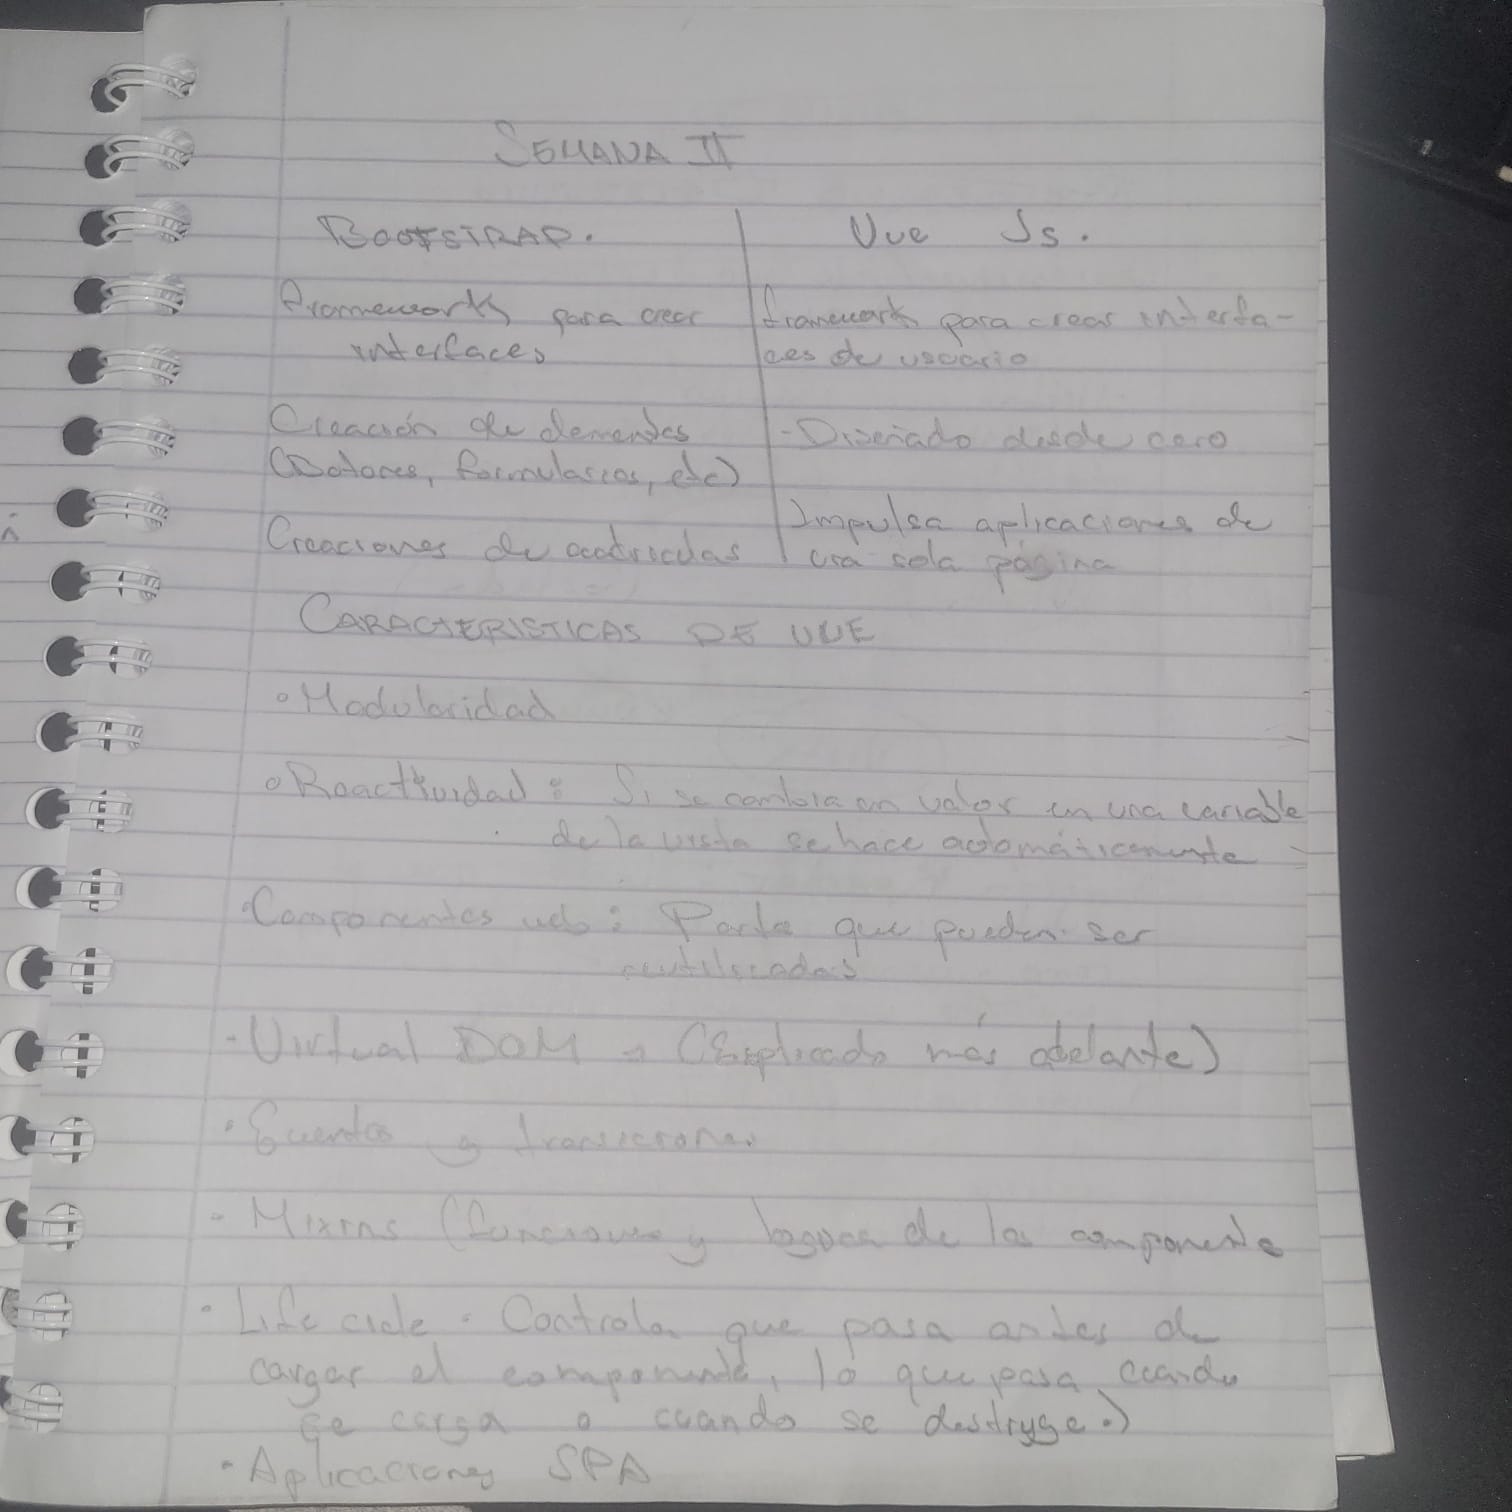 SEMANA II
BOOTSTRAP.
Framework para crear
interfaces
Creación de elementos
(Botones, formularios, etc)
Creaciones de cuadriculas
Vue Js.
framework para crear interfa-
ces de usuario
- Diseñado desde cero
Impulsa aplicaciones de
una sola página
CARACTERISTICAS DE VUE
• Modularidad
• Reactividad : Si se cambia un valor en una variable
de la vista se hace automáticamente
• Componentes web : Parte que pueden ser
reutilizadas
- Virtual DOM → (Explicado más adelante)
• Eventos y transiciones
- Mixins (funciones y logica de los componente
• Life cicle . Controla que pasa antes de
cargar el componente, lo que pasa cuando
se carga o cuando se destryge.)
• Aplicaciones SPA